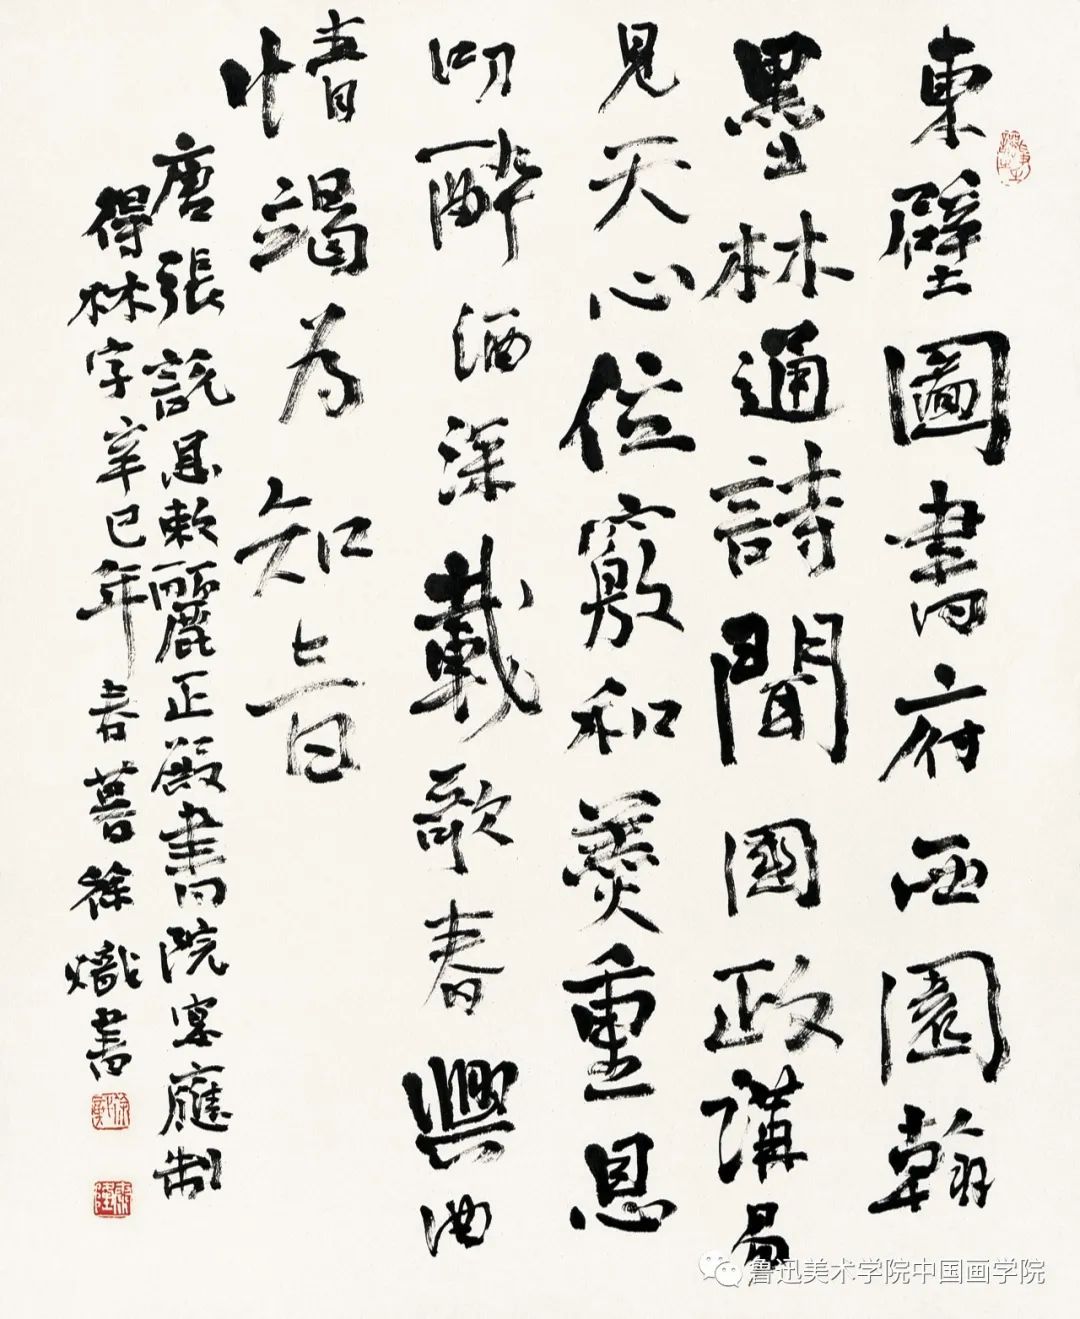 東壁圖書府西園翰
墨林誦詩聞國政講易
見天心位竊和羹重恩
叨醉酒深載歌春興曲
情竭為知音
唐張說恩敕麗正殿書院宴應制
得林字辛巳年春暮徐熾書
鲁迅美术学院中国画学院